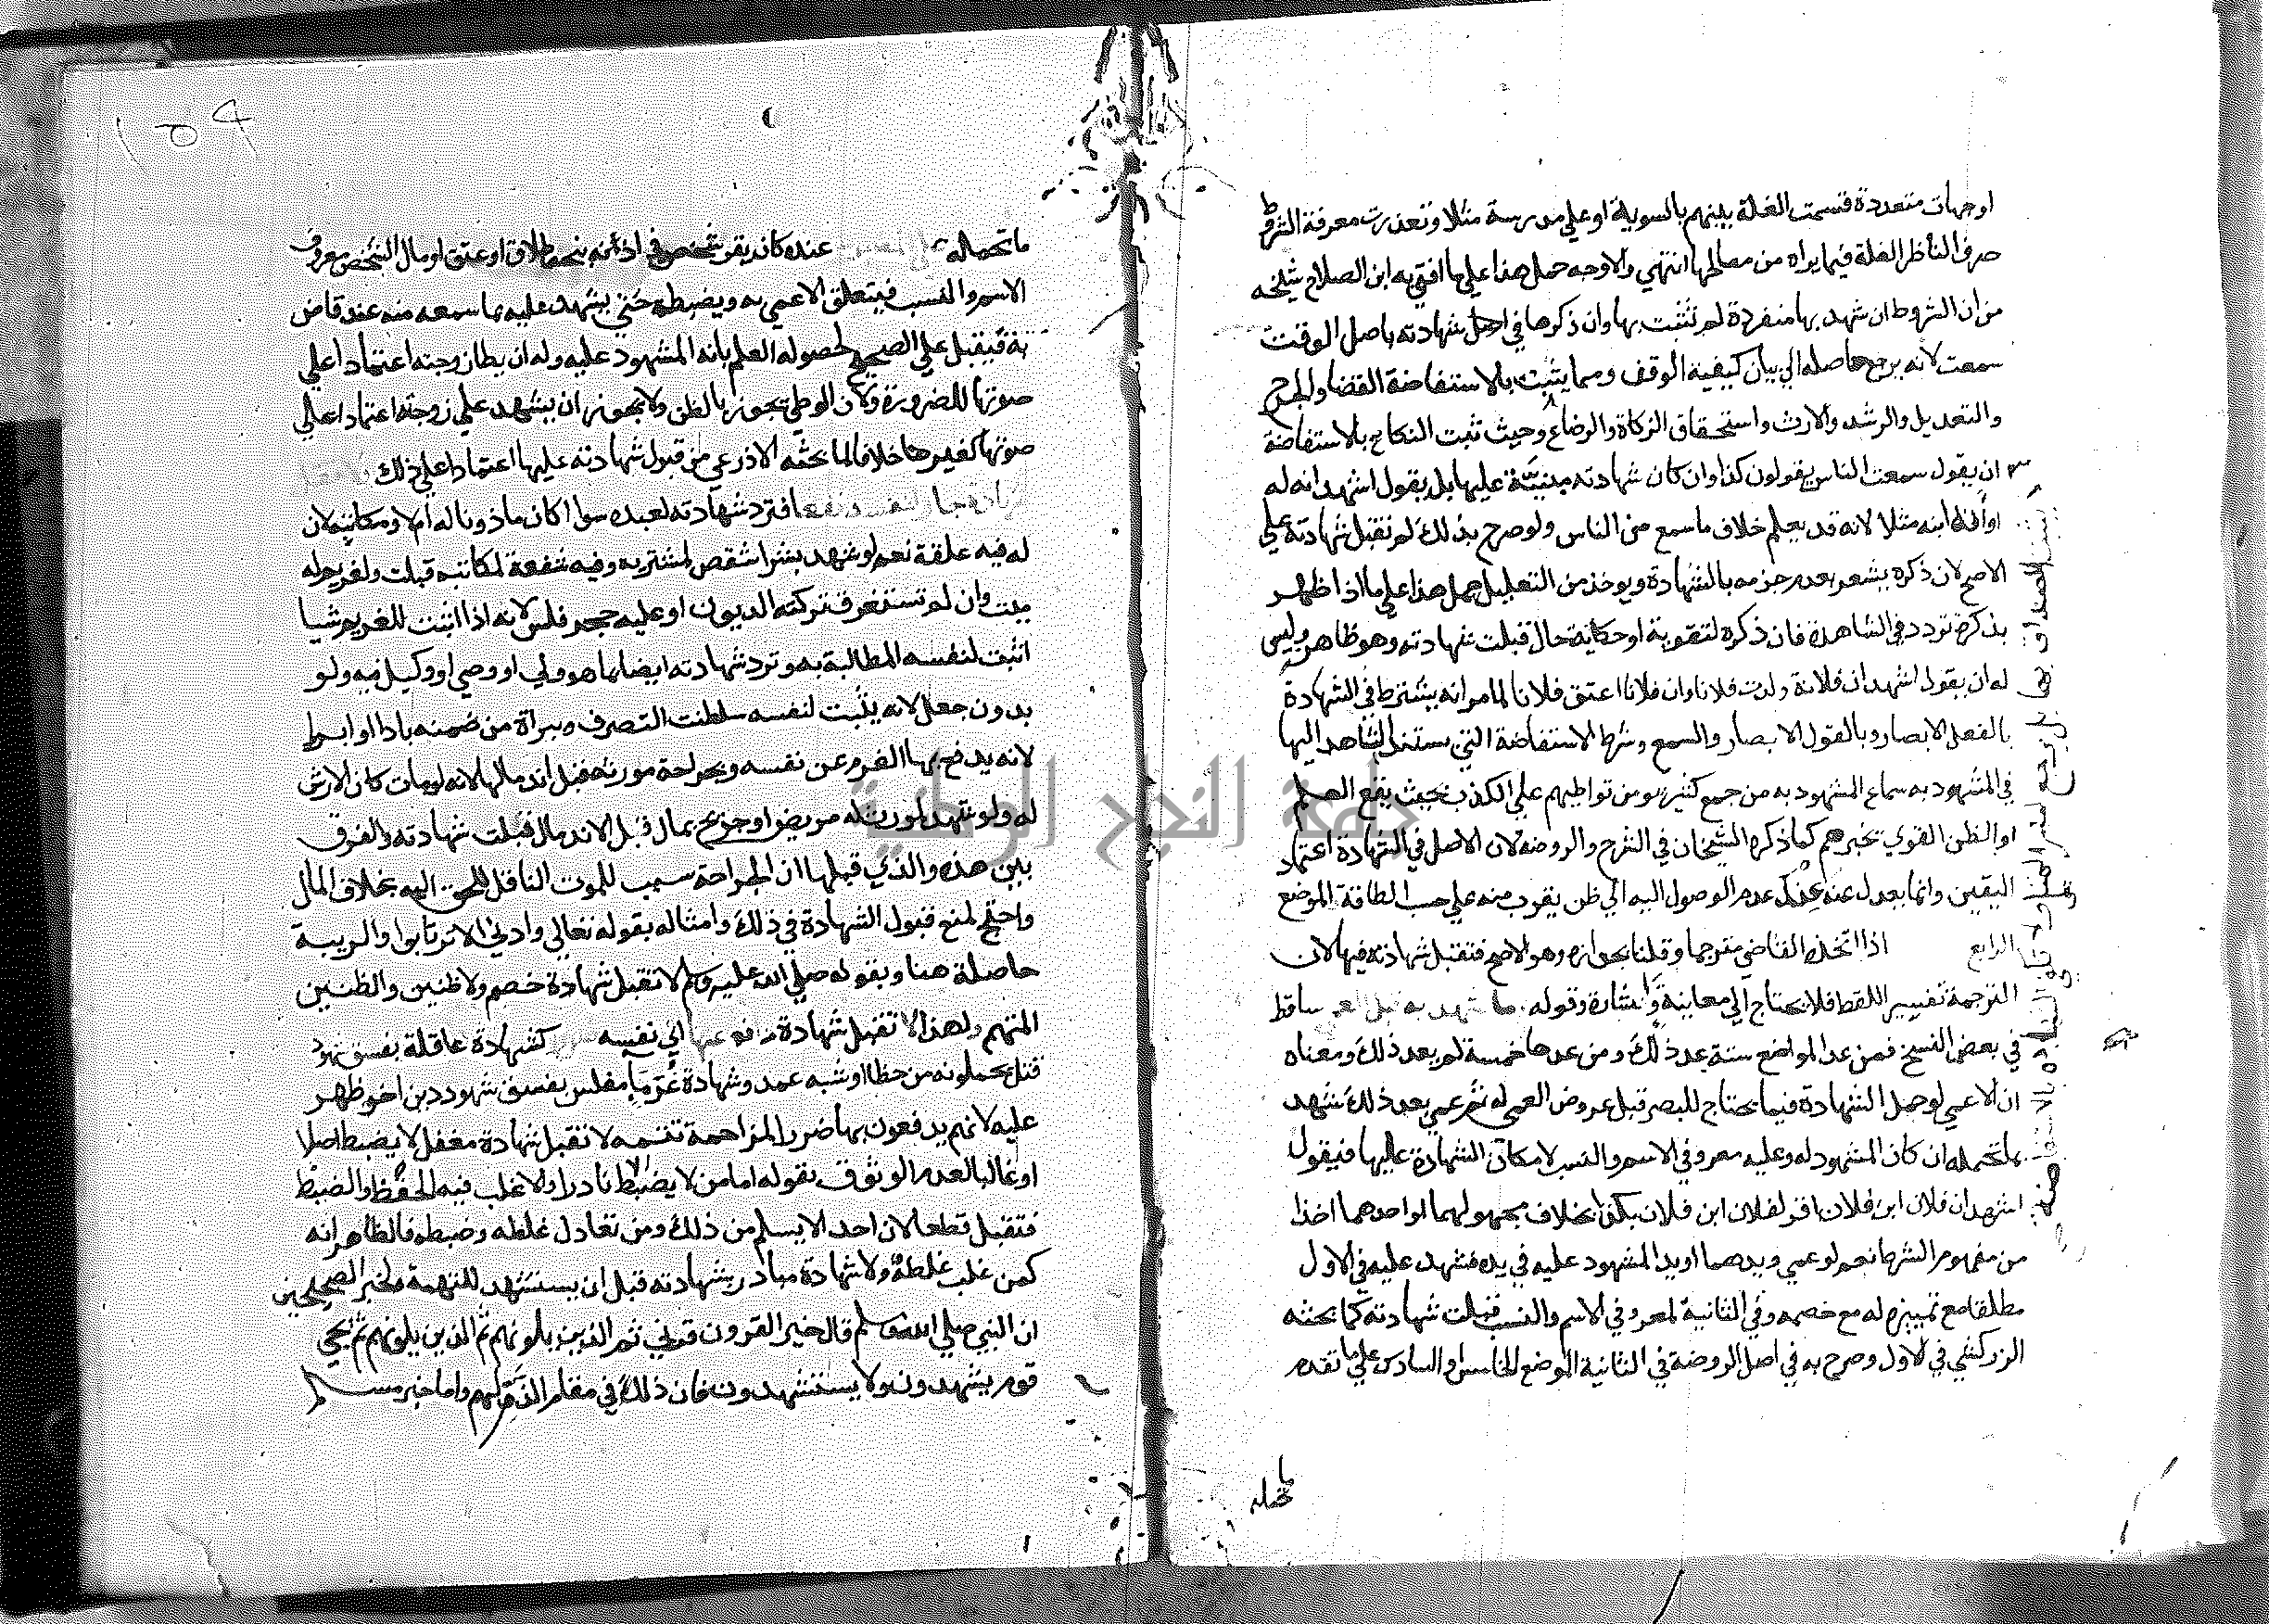 او جهات متعددة قسمت الغلة بينهم بالسوية او علي مدرسة مثلا وتعذرت معرفة الشرط
صرف الناظر الغلة فيما يراه من مصالحها انتهي والاوجه حمل هذا علي ما افتي به ابن الصلاح شيخه
من ان الشروط ان شهد بها منفردة لم تثبت بها وان ذكرها في اصل شهادته باصل الوقف
سمعت لانه يرجع حاصله الي بيان كيفية الوقف ومما يثبت بالاستفاضة القضا والجرح
والتعديل والرشد والارث واستحقاق الزكاة والرضاع وحيث ثبت النكاح بالاستفاضة
ان يقول سمعت الناس يقولون كذا وان كان شهادته مبنية عليها بل يقول اشهد انه له
او أنه ابنه مثلا لانه قد يعلم خلاف ما سمع من الناس ولو صرح بذلك لم تقبل شهادته علي
الاصح لان ذكره يشعر بعدم جزمه بالشهادة ويوخذ من التعليل حمل هذا علي ما اذا ظهر
بذكره تردد في الشاهدة فان ذكره لتقوية او حكاية حال قبلت شهادته وهو ظاهر وليس
له ان يقول اشهد ان فلانة ولدت فلانا وان فلانا اعتق فلانا لما مر انه يشترط في الشهادة
بالفعل الابصار وبالقول الابصار والسمع وشرط الاستفاضة التي يستند الشاهد اليها
في المشهود به سماع المشهود به من جمع كثير يومن تواطيهم علي الكذب بحيث يقع العلم
او الظن القوي بخبرهم كما ذكره الشيخان في الشرح والروضه لان الاصل في الشهادة اعتماد
اليقين وانما يعدل عنه عند عدم الوصول اليه الي ظن يقرب منه علي حسب الطاقة الموضع
الرابع اذا اتخذه القاضي مترجما وقلنا بجوازه وهو الاصح فتقبل شهادته فيها لان
الترجمة تفسير اللفظ فلا يحتاج الي معاينة واشارة وقوله ما شهد به قبل العمي ساقط
في بعض النسخ فمن عد المواضع ستة عد ذلك ومن عدها خمسة لم يعد ذلك ومعناه
ان الاعمي لو حمل الشهادة فيما يحتاج للبصر قبل عروض العمي له ثم عمي بعد ذلك شهد
بما تحمله ان كان المشهود له وعليه معروفي الاسم والنسب لامكان الشهادة عليها فيقول
اشهد ان فلان ابن فلان اقر لفلان ابن فلان بكذا بخلاف مجهولهما او احدهما اخذا
من مفهوم الشرط نعم لو عمي ويدهما او يد المشهود عليه في يده فشهد عليه في الاول
مطلقا مع تمييزه له مع خصمه وفي الثانية لمعروفي الاسم والنسب قبلت شهادته كما بحثه
الزركشي في الاول وصرح به في اصل الروضة في الثانية الموضع الخامس والسادس علي ما تقدم
ما تحمله
ما تحمله عنده كان يقر شخص في اذنه بنحو طلاق او عتق او مال الشخص معروف
الاسم والنسب فيتعلق الاعمي به ويضبطه حتي يشهد عليه بما سمعه منه عند قاض
به فيقبل علي الصحيح لحصوله العلم بانه المشهود عليه وله ان يطا زوجته اعتمادا علي
صوتها للضرورة ولان الوطي تجوز بالظن ولا يجوز ان يشهد علي زوجته اعتمادا علي
صوتها كغيرها خلافا لما بحثه الاذرعي من قبول شهادته عليها اعتمادا علي ذلك
فترد شهادته لعبده سوا اكان ماذونا له ام لا ومكاتبه لان
له فيه علقة نعم لو شهد بشرا شقص لمشتريه وفيه شفعة لمكاتبه قبلت ولغريم له
ميت وان لم تستغرق تركته الديون او عليه حجر فلس لانه اذا اثبت للغريم شيا
اثبت لنفسه المطالبة به وترد شهادته ايضا بما هو ولي او وصي او وكيل فيه ولو
بدون جعل لانه يثبت لنفسه سلطنت التصرف وببراة من ضمنه بادا او ابرا
لانه يدفع بها الغرم عن نفسه وبجراحة مورثه قبل اندمالها لانه لو مات كان الارش
له ولو شهد لمورث له مريض او جريح بمال قبل الاندمال قبلت شهادته والفرق
بين هذه والذي قبلها ان الجراحة سبب للموت الناقل للحق اليه بخلاف المال
واحتج لمنع قبول الشهادة في ذلك وامثاله بقوله تعالي وادني الا ترتابوا والريبة
حاصلة هنا وبقوله صلي الله عليه وسلم لا تقبل شهادة خصم ولا ظنين والظنين
المتهم ولهذا لا تقبل شهادة دافع عنها الي نفسه كشهادة عاقلة بفسق شهود
قتل يحملونه من خطا او شبه عمد وشهادة غرما مفلس بفسق شهود دين اخر ظهر
عليه لانهم يدفعون بها ضرر المزاحمة تتمه لا تقبل شهادة مغفل لا يضبط اصلا
او غالبا لعدم الوثوق بقوله اما من لا يضبط نادرا والاغلب فيه الحفظ والضبط
فتقبل قطعا لان احدا لا يسلم من ذلك ومن تعادل غلطه وضبطه فالظاهر انه
كمن غلب غلطه ولا شهادة مبادر بشهادته قبل ان يستشهد للتهمة ولخبر الصحيحين
ان النبي صلي الله وسلم قال خير القرون قرني ثم الذين يلونهم ثم الذين يلونهم ثم يجي
قوم يشهدون ولا يستشهدون فان ذلك في مقام الذم لهم واما خبر مسلم
جامعة النجاح الوطنية